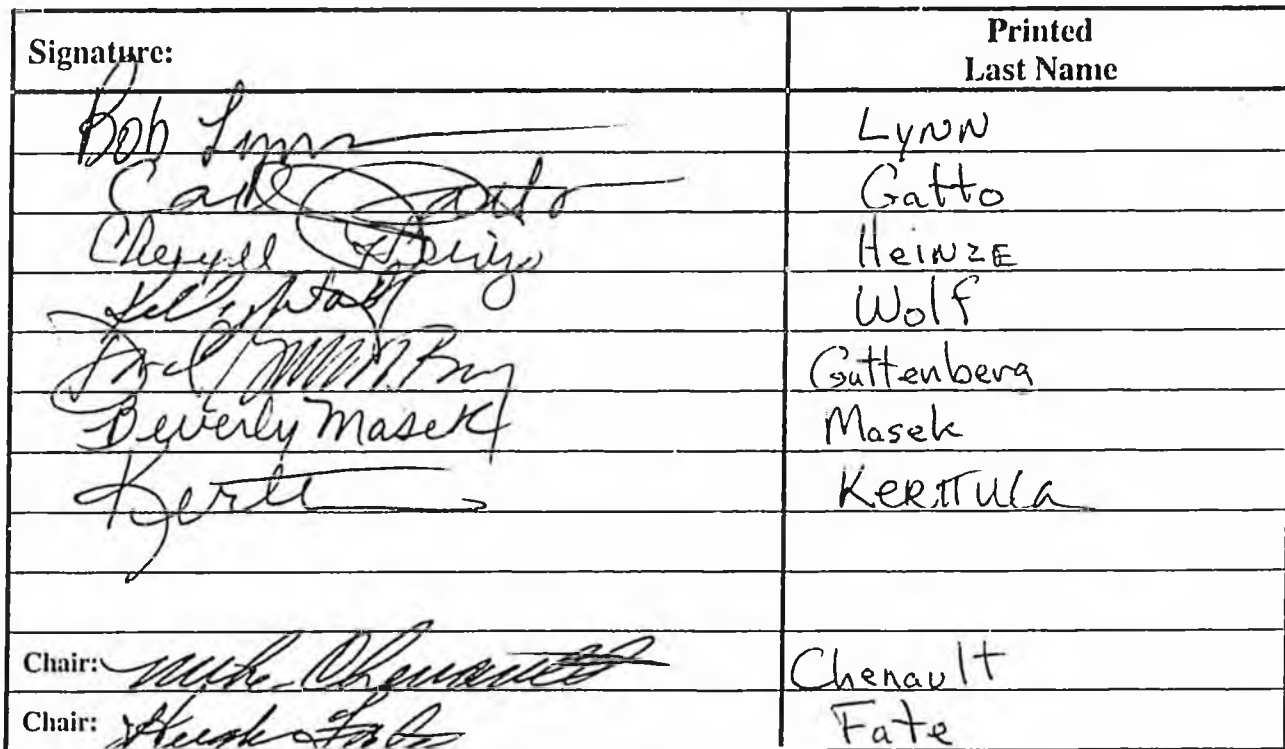 Signature: Printed
Last Name
Bob Lynn Lynn
Carl Gatto Gatto
Cheryll Heinze Heinze
Kelly Wolf Wolf
Guttenberg
Beverly Masek Masek
Kertt KeRttula
Chair: Mike Chenault Chenault
Chair: Hugh Fate Fate